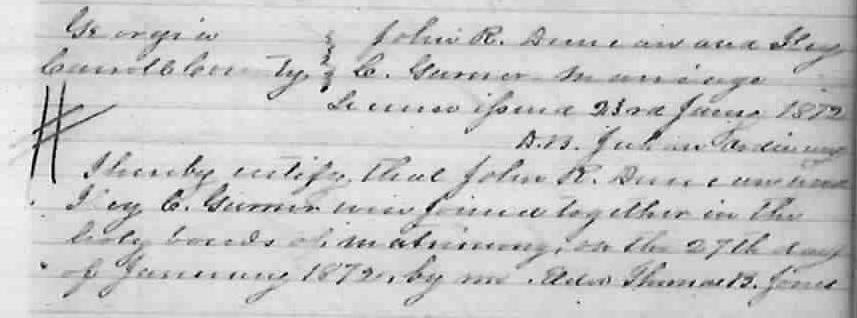 Georgia } John R. Duncan and Icy
Carroll County } C. Garner Marriage
License issued 23rd Jany 1872
D.B. Juhan Ordinary
I hereby certify that John R. Duncan and
Icy C. Garner were joined together in the
holy bonds of matrimony, on the 27th day
of January 1872, by me. Thomas B. Jones